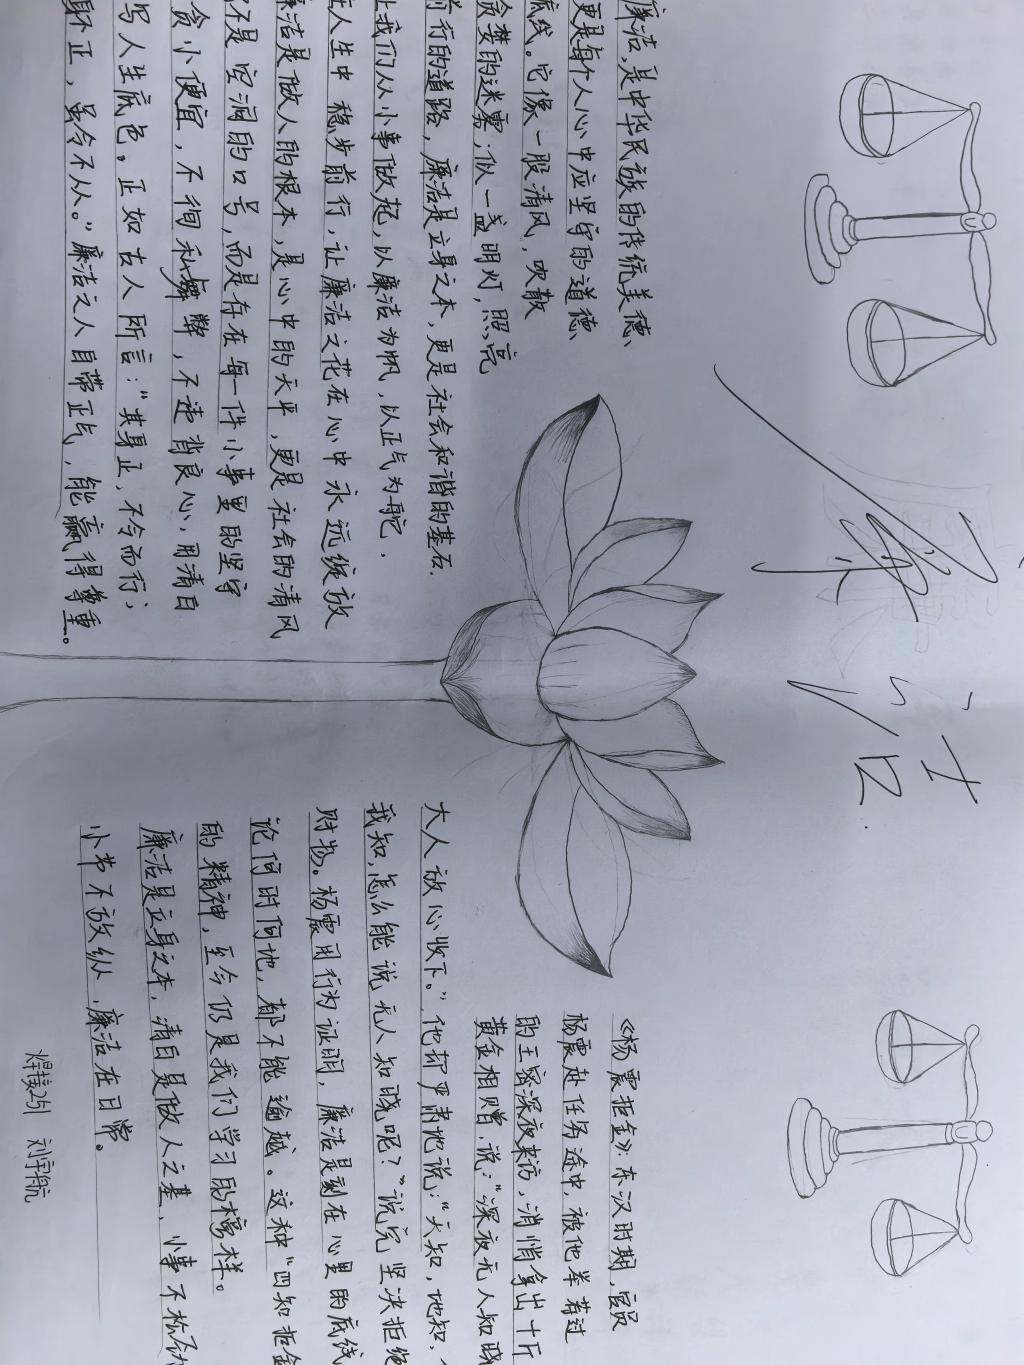 廉洁
廉洁,是中华民族的传统美德、
更是每个人心中应坚守的道德、
底线。它像一股清风,吹散
贪婪的迷雾;似一盏明灯,照亮
前行的道路,廉洁是立身之本,更是社会和谐的基石.
让我们从小事做起,以廉洁为帆,以正气为舵.
在人生中稳步前行,让廉洁之花在心中永远绽放
廉洁是做人的根本,是心中的天平,更是社会的清风
不是空洞的口号,而是存在每一件小事里的坚守
贪小便宜,不徇私舞弊,不违背良心.用清白
写人生底色。正如古人所言:"其身正,不令而行;
身不正,虽令不从。"廉洁之人自带正气,能赢得尊重。
《杨震拒金》:东汉时期,官员
杨震赴任务途中,被他举荐过
的王密深夜来访,消悄拿出十斤
黄金相赠,说:"深夜无人知晓
大人放心收下。"他却严肃地说:"天知,地知,
我知,怎么能说无人知晓呢?"说完坚决拒绝
财物。杨震用行为证明,廉洁是刻在心里的底线
论何时何地,都不能逾越。这种"四知拒金
的精神,至今仍是我们学习的榜样。
廉洁是立身之本,清白是做人之基,小事不
小节不放纵,廉洁在日常。
焊接251 刘宇航